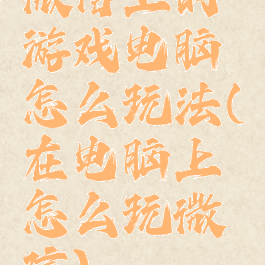 上的
游戏电脑
怎么玩法(
在电脑上
怎么玩微
)